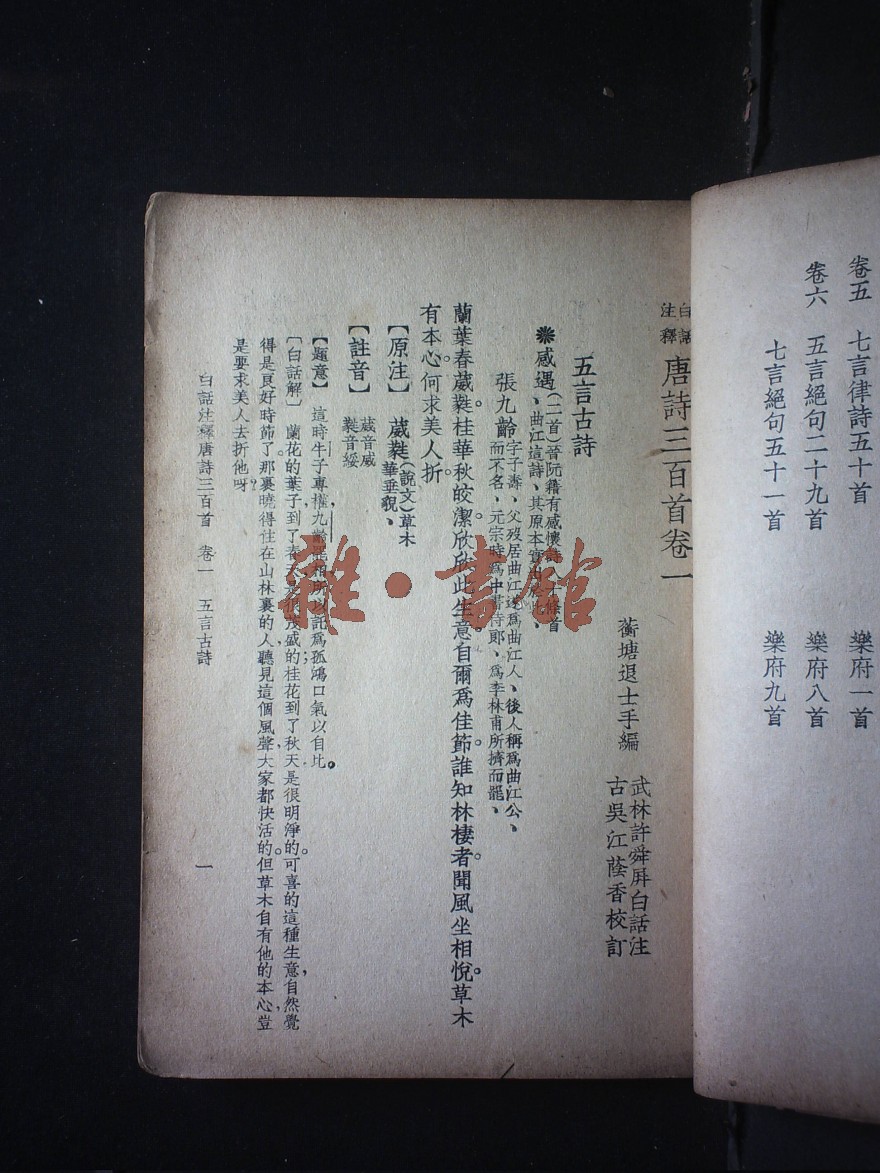 卷五　七言律詩五十首　樂府一首
卷六　五言絕句二十九首　樂府八首
七言絕句五十一首　樂府九首
白話注釋　唐詩三百首卷一
蘅塘退士手編
武林許舜屛白話注
古吳江蔭香校訂
五言古詩
❋感遇(二首)晉阮籍有感懷詩八十餘首
、曲江這詩、其原本實出
張九齡字子壽、父歿居曲江遂爲曲江人、後人稱爲曲江公、
而不名、元宗時爲中書侍郎、爲李林甫所擠而罷、
蘭葉春葳蕤。桂華秋皎潔。欣欣此生意。自爾爲佳節。誰知林棲者。聞風坐相悅。草木
有本心。何求美人折
【原注】　葳蕤(說文)草木
華垂貌、
【註音】　葳音威
蕤音綏
【題意】　這時牛子專權九齡罷相所以託爲孤鴻口氣以自比。
［白話解］　蘭花的葉子到了春天是很茂盛的桂花到了秋天是很明淨的。可喜的這種生意自然覺
得是良好時節了。那裏曉得住在山林裏的人聽見這個風聲大家都快活的。但草木自有他的本心豈
是要求美人去折他呀？
白話注釋唐詩三百首　卷一　五言古詩　一
雜·書館